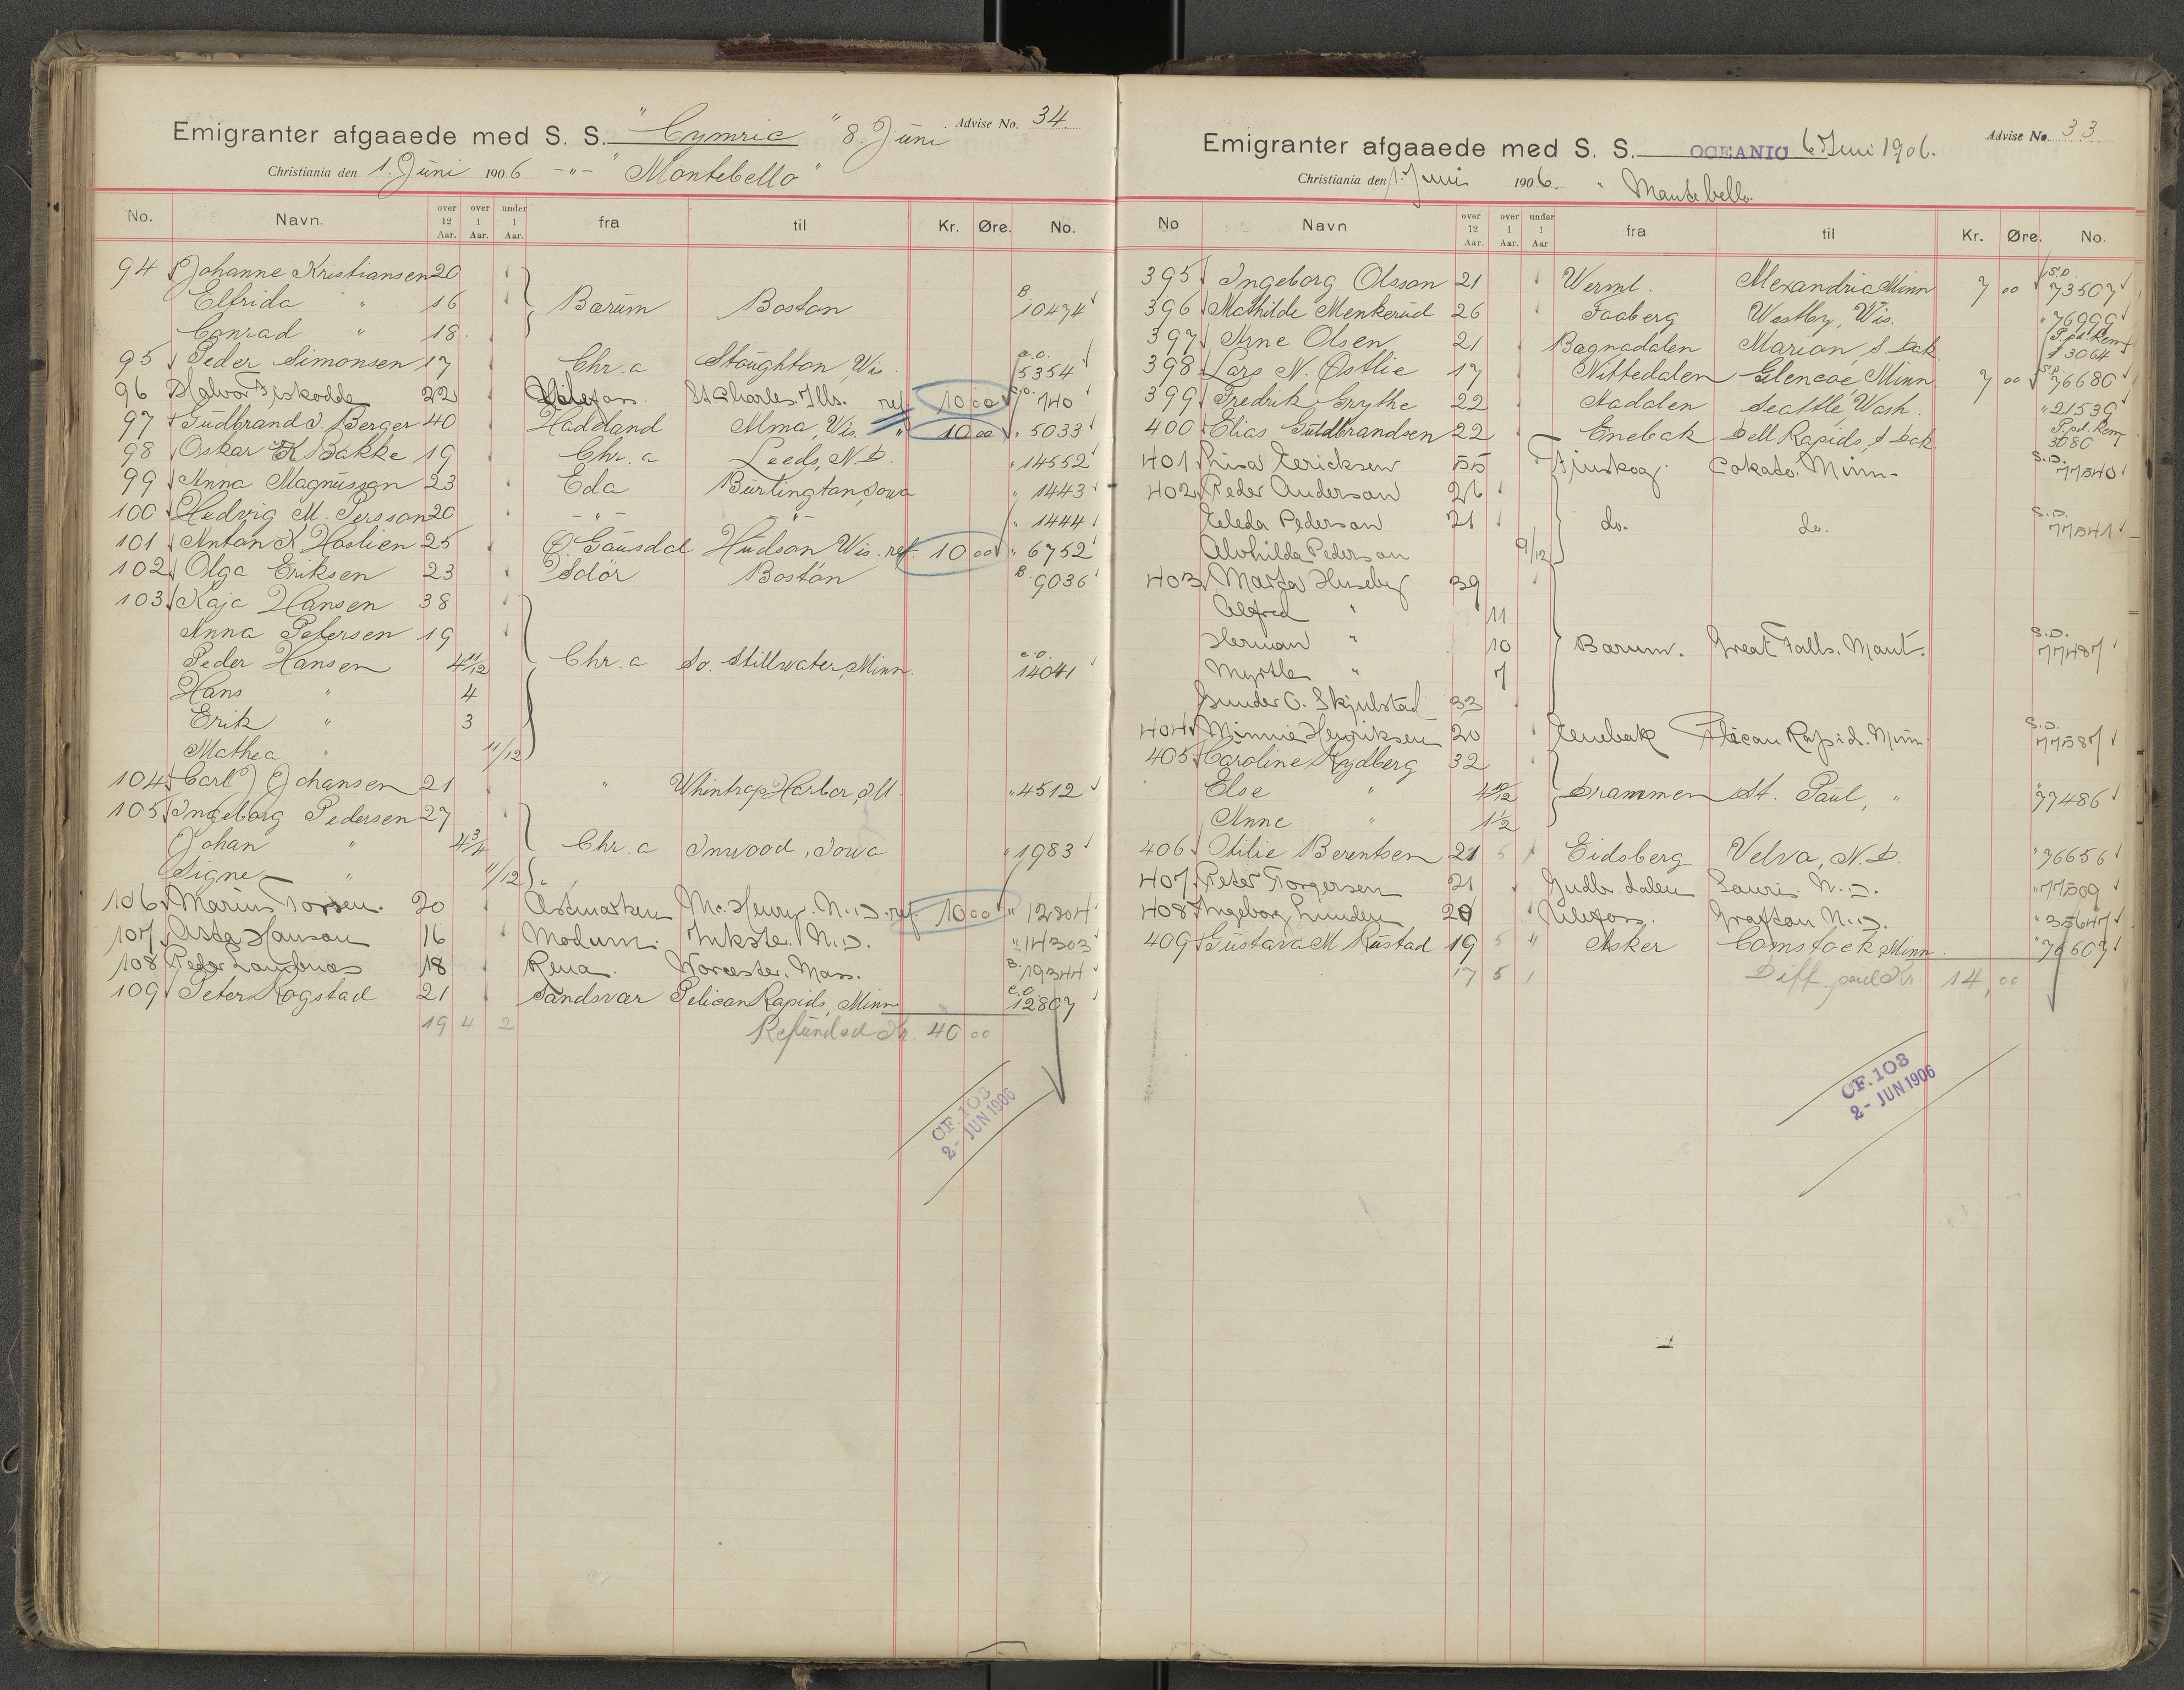 Emigranter afgaaede med S. S. "Cymric" 8. Juni Advise No. 34
Christiania den 1. Juni 1906 -"- "Montebello"
No. Navn. over 12 Aar. over 1 Aar. under 1 Aar. fra til Kr. Øre. No.
94 Johanne Kristiansen 20
Elfrida " 16 Barum Boston B 10474
Conrad " 18
95 Peder Simonsen 17 Chr.a Stoughton, Wis. c.o. 5354
96 Halvor 22 St Charles. Ills. ref. 10 00 c.o. 740
97 Gudbrand J. Berger 40 Hadeland Alma, Wis. " 10 00 " 5033
98 Oskar K Bakke 19 Chr. a Leeds, N. D. " 14552
99 Anna Magnusson 23 Eda Burlington, Iowa " 1443
100 Hedvig M. Persson 20 -"- -"- " 1444
101 Anton K Haslien 25 Ø. Gausdal Hudson Wis. ref. 10 00 " 6752
102 Olga Eriksen 23 Iddör Boston B. 9036
103 Kaja Hansen 38
Anna Petersen 19
Peder Hansen 4 11/12 Chr. a So. Stillwater, Minn. c.o. 14041
Hans " 4
Erik " 3
Mathea " 11/12
104 Carl J Johansen 21 " Whintrop Harbor, Ill. " 4512
105 Ingeborg Pedersen 27
Johan " 4 3/4 Chr. a Inwood, Iowa " 1983
Signe " 11/12
106 Marius Torsen. 20 Aasmarken Mc. Henry. N. D. ref. 10 00 " 12804
107 Asta Hanson 16 Modum. Inkster. N. D. " 14303
108 Peder 18 Rena. Worcester. Mass. B. 19344
109 Peter Rogstad 21 Sandsvær Pelican Rapids, Minn c.o. 12807
19 4 2 Refunded Kr. 40 00
CF. 103
2 - JUN 1906
Emigranter afgaaede med S. S. OCEANIC 6 Juni 1906. Advise No. 33
Christiania den 1. Juni 1906. " Montebello.
No Navn over 12 Aar. over 1 Aar. under 1 Aar fra til Kr. Øre. No.
395 Ingeborg Olsson 21 Werml. Alexandria Minn 7 00 S.D. 73507
396 Mathilde Menkerud 26 Faaberg Westby, Wis. " 76999
397 Arne Olsen 21 Bagnadalen Marion, S Dak. P.pd. Rem 3064
398 Lars N. Østlie 17 Nittedalen Glencoe Minn. 7 00 S.D. 76680
399 Fredrik Grythe 22 Aadalen Seattle Wash. " 21539
400 Elias Guldbrandsen 22 Enebak Dell Rapids, S Dak P.pd. Rem 3080
401 Lisa Ericksen 55 Cokato. Minn. S.D. 77540
402 Peder Anderson 26
Eleda Pederson 21 do. do. S.D. 77541
Alvhilda Pederson 9/12
403 Marta Huseby 39
Alfred " 11
Herman " 10 Barum. Great Falls. Mont. S.D. 77487
Myrtle " 7
Gunder O. Skjulstad 33
404 Minnie Henriksen 20 Enebak Pelican Rapids. Minn. S.D. 77587
405 Caroline Rydberg 32
Else " 4 10/12 Drammen St. Paul, " " 77486
Anne " 1 1/2
406 Otilie Berentsen 21 Eidsberg Velva, N. D. " 76656
407 Peter Torgersen 21 Gudbr.dalen N. D. " 77509
408 Ingeborg Lunden 20 Ulefoss. Grafton N. D. " 35647
409 Gustava M Rustad 19 Asker Comstock, Minn. " 76607
17 5 1 Diff. paid Kr. 14,00
CF. 103
2 - JUN 1906